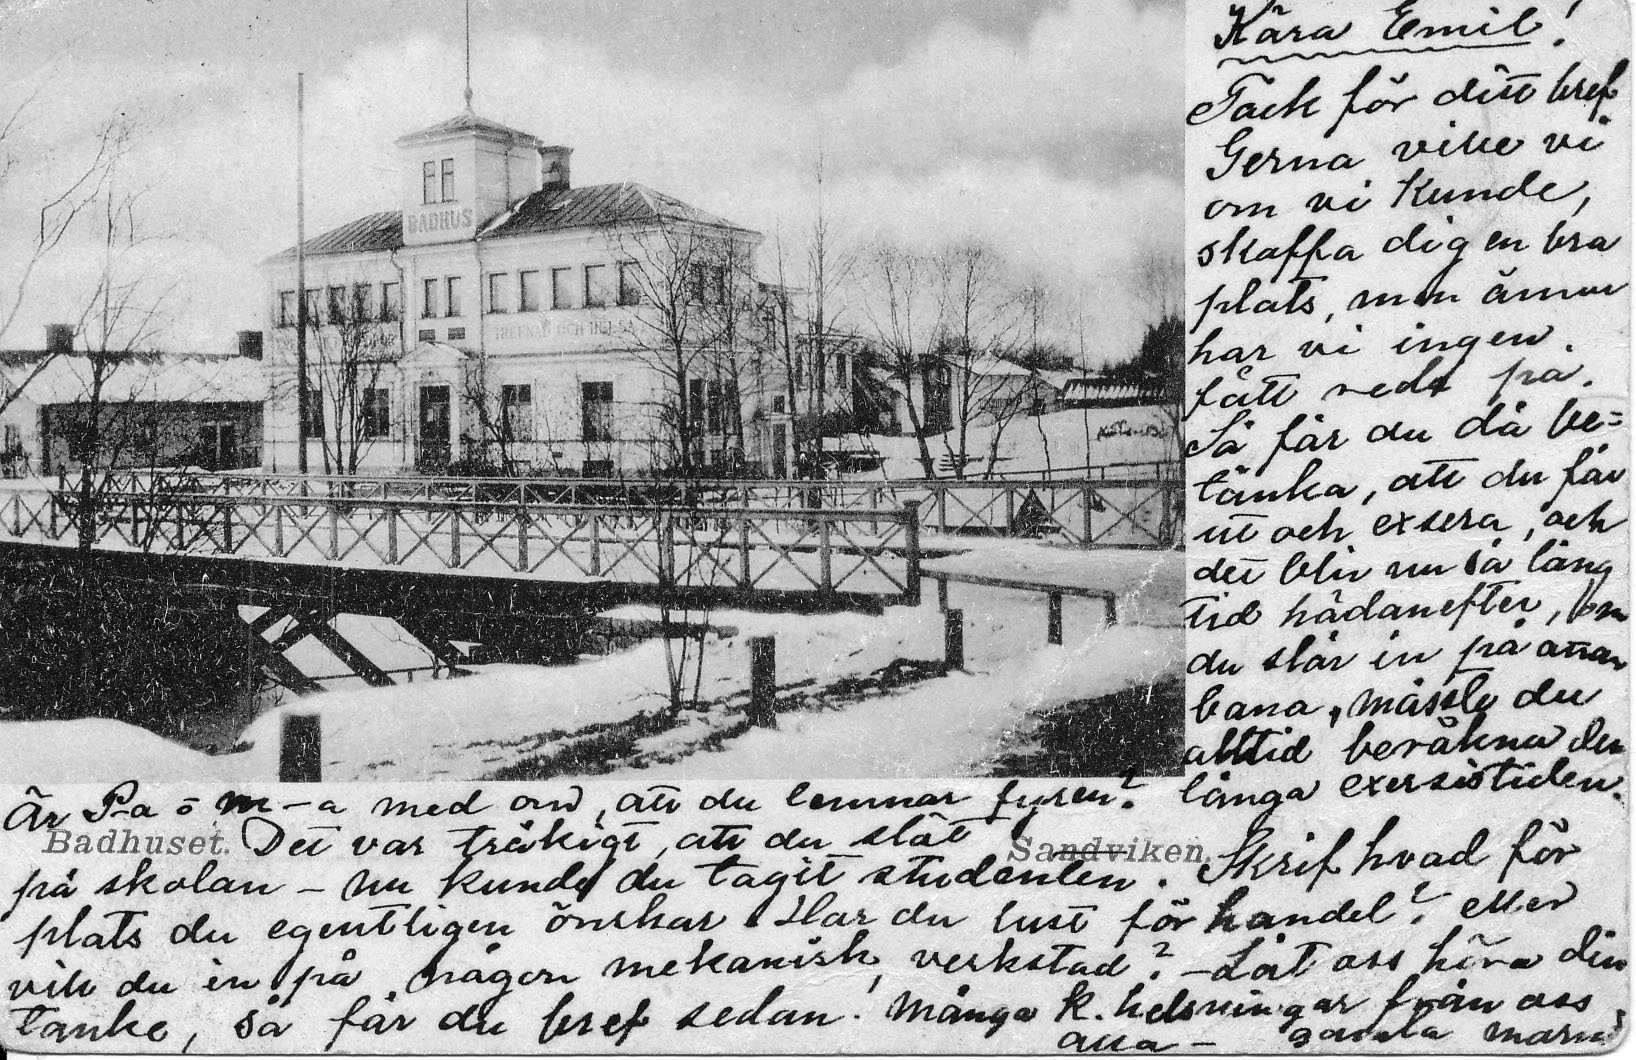 Kära Emil!
Tack för ditt bref
Gerna ville vi
om vi kunde,
skaffa dig en bra
plats, men ännu
har vi ingen
fått reda på.
Så får du då be=
tänka, att du får
ut och exsera, och
det blir nu så lång
tid hädanefter, om
du slår in på annan
bana, måste du
alltid beräkna den
långa exersistiden.
Är P-a o m-a med om, att du lemnar fyren?
Det var tråkigt, att du slöt
på skolan – nu kunde du tagit studenten. Skrif hvad för
plats du egentligen önskar. Har du lust för handel? eller
vill du in på någon mekanisk verkstad? – Låt oss höra din
tanke, så får du bref sedan! Många k. helsningar från oss
alla – gamla
BADHUS
TREFNAD OCH HELSA
Badhuset.
Sandviken.